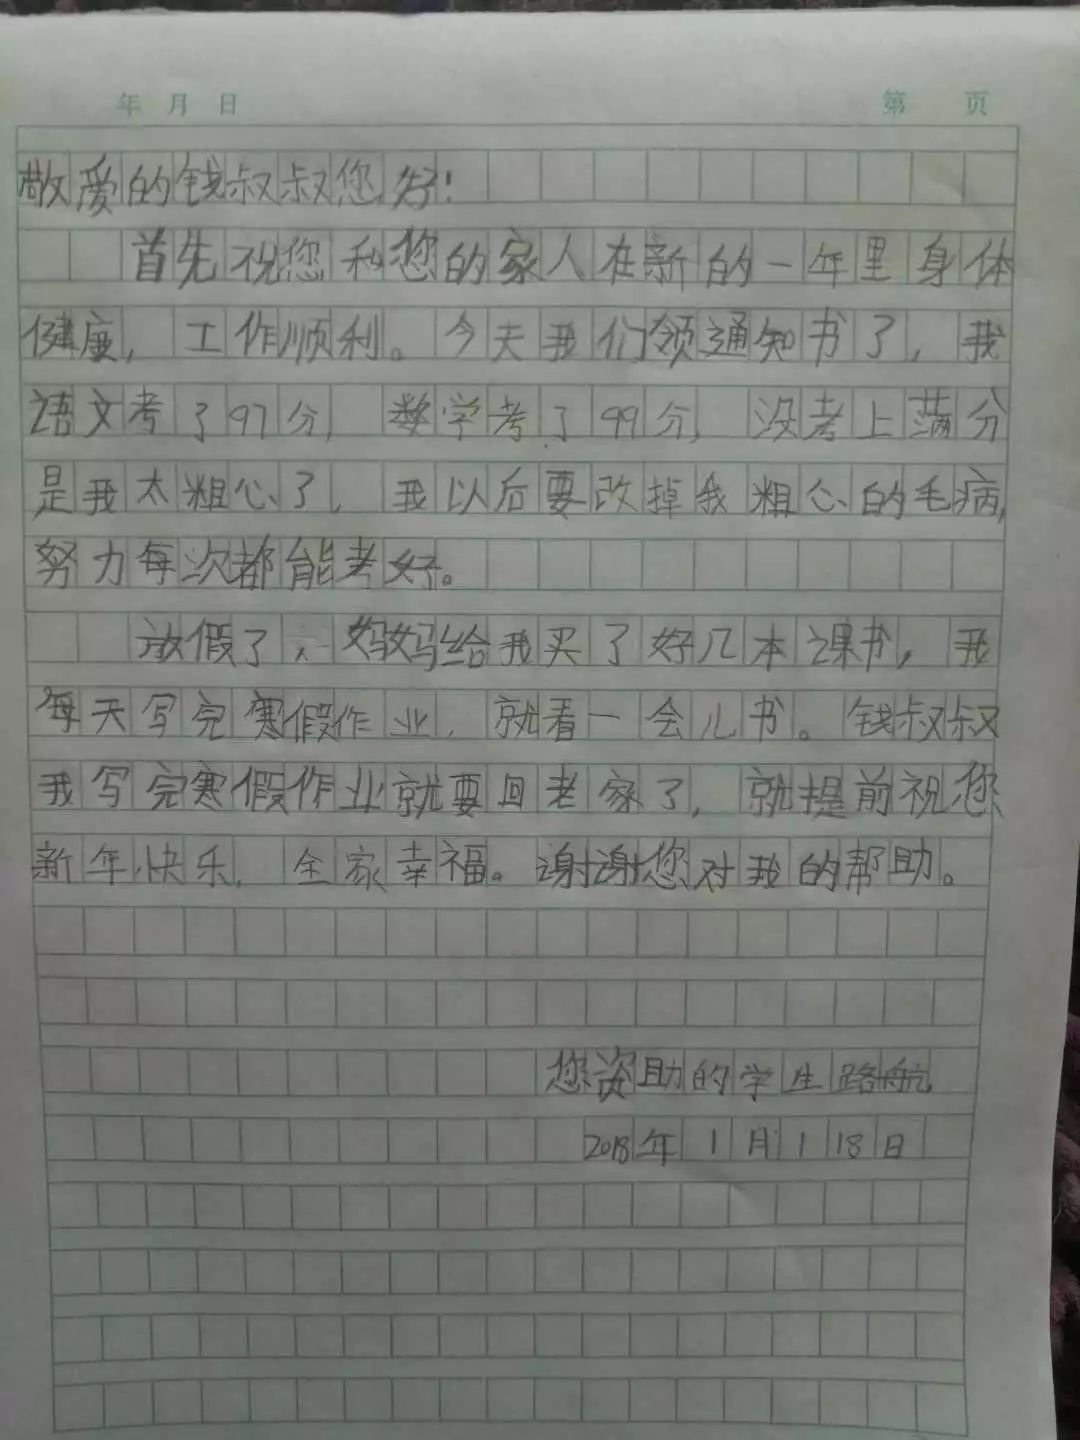 年 月 日 第 页
敬爱的钱叔叔您好!
首先祝您和您的家人在新的一年里身体
健康,工作顺利。今天我们领通知书了,我
语文考了97分,数学考了99分,没考上满分
是我太粗心了,我以后要改掉我粗心的毛病,
努力每次都能考好。
放假了,妈妈给我买了好几本课书,我
每天写完寒假作业,就看一会儿书。钱叔叔
我写完寒假作业就要回老家了,就提前祝您
新年快乐,全家幸福。谢谢您对我的帮助。
您资助的学生路航
2018年1月118日